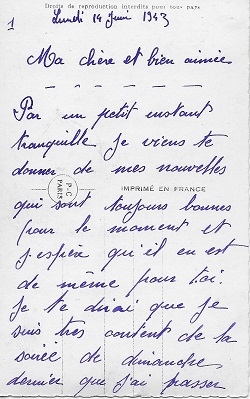 Droits de reproduction interdits pour tous pays
Lundi 14 Juin 1943
1
Ma chère et bien aimée
Par un petit instant
tranquille je viens te
donner de mes nouvelles
P.C
PARIS
IMPRIMÉ EN FRANCE
qui sont toujours bonnes
pour le moment et
j'espère qu'il en est
de même pour toi.
Je te dirai que je
suis très content de la
soirée de dimanche
dernier que j'ai passer